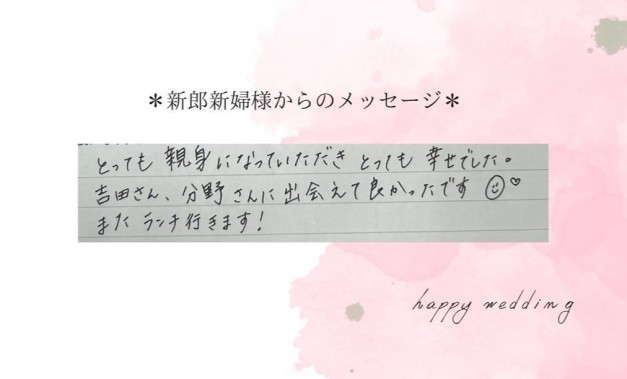 ＊新郎新婦様からのメッセージ＊
とっても 親身になっていただき とっても 幸せでした。
吉田さん、分野さんに出会えて良かったです☺♡
また ランチ行きます!
happy wedding